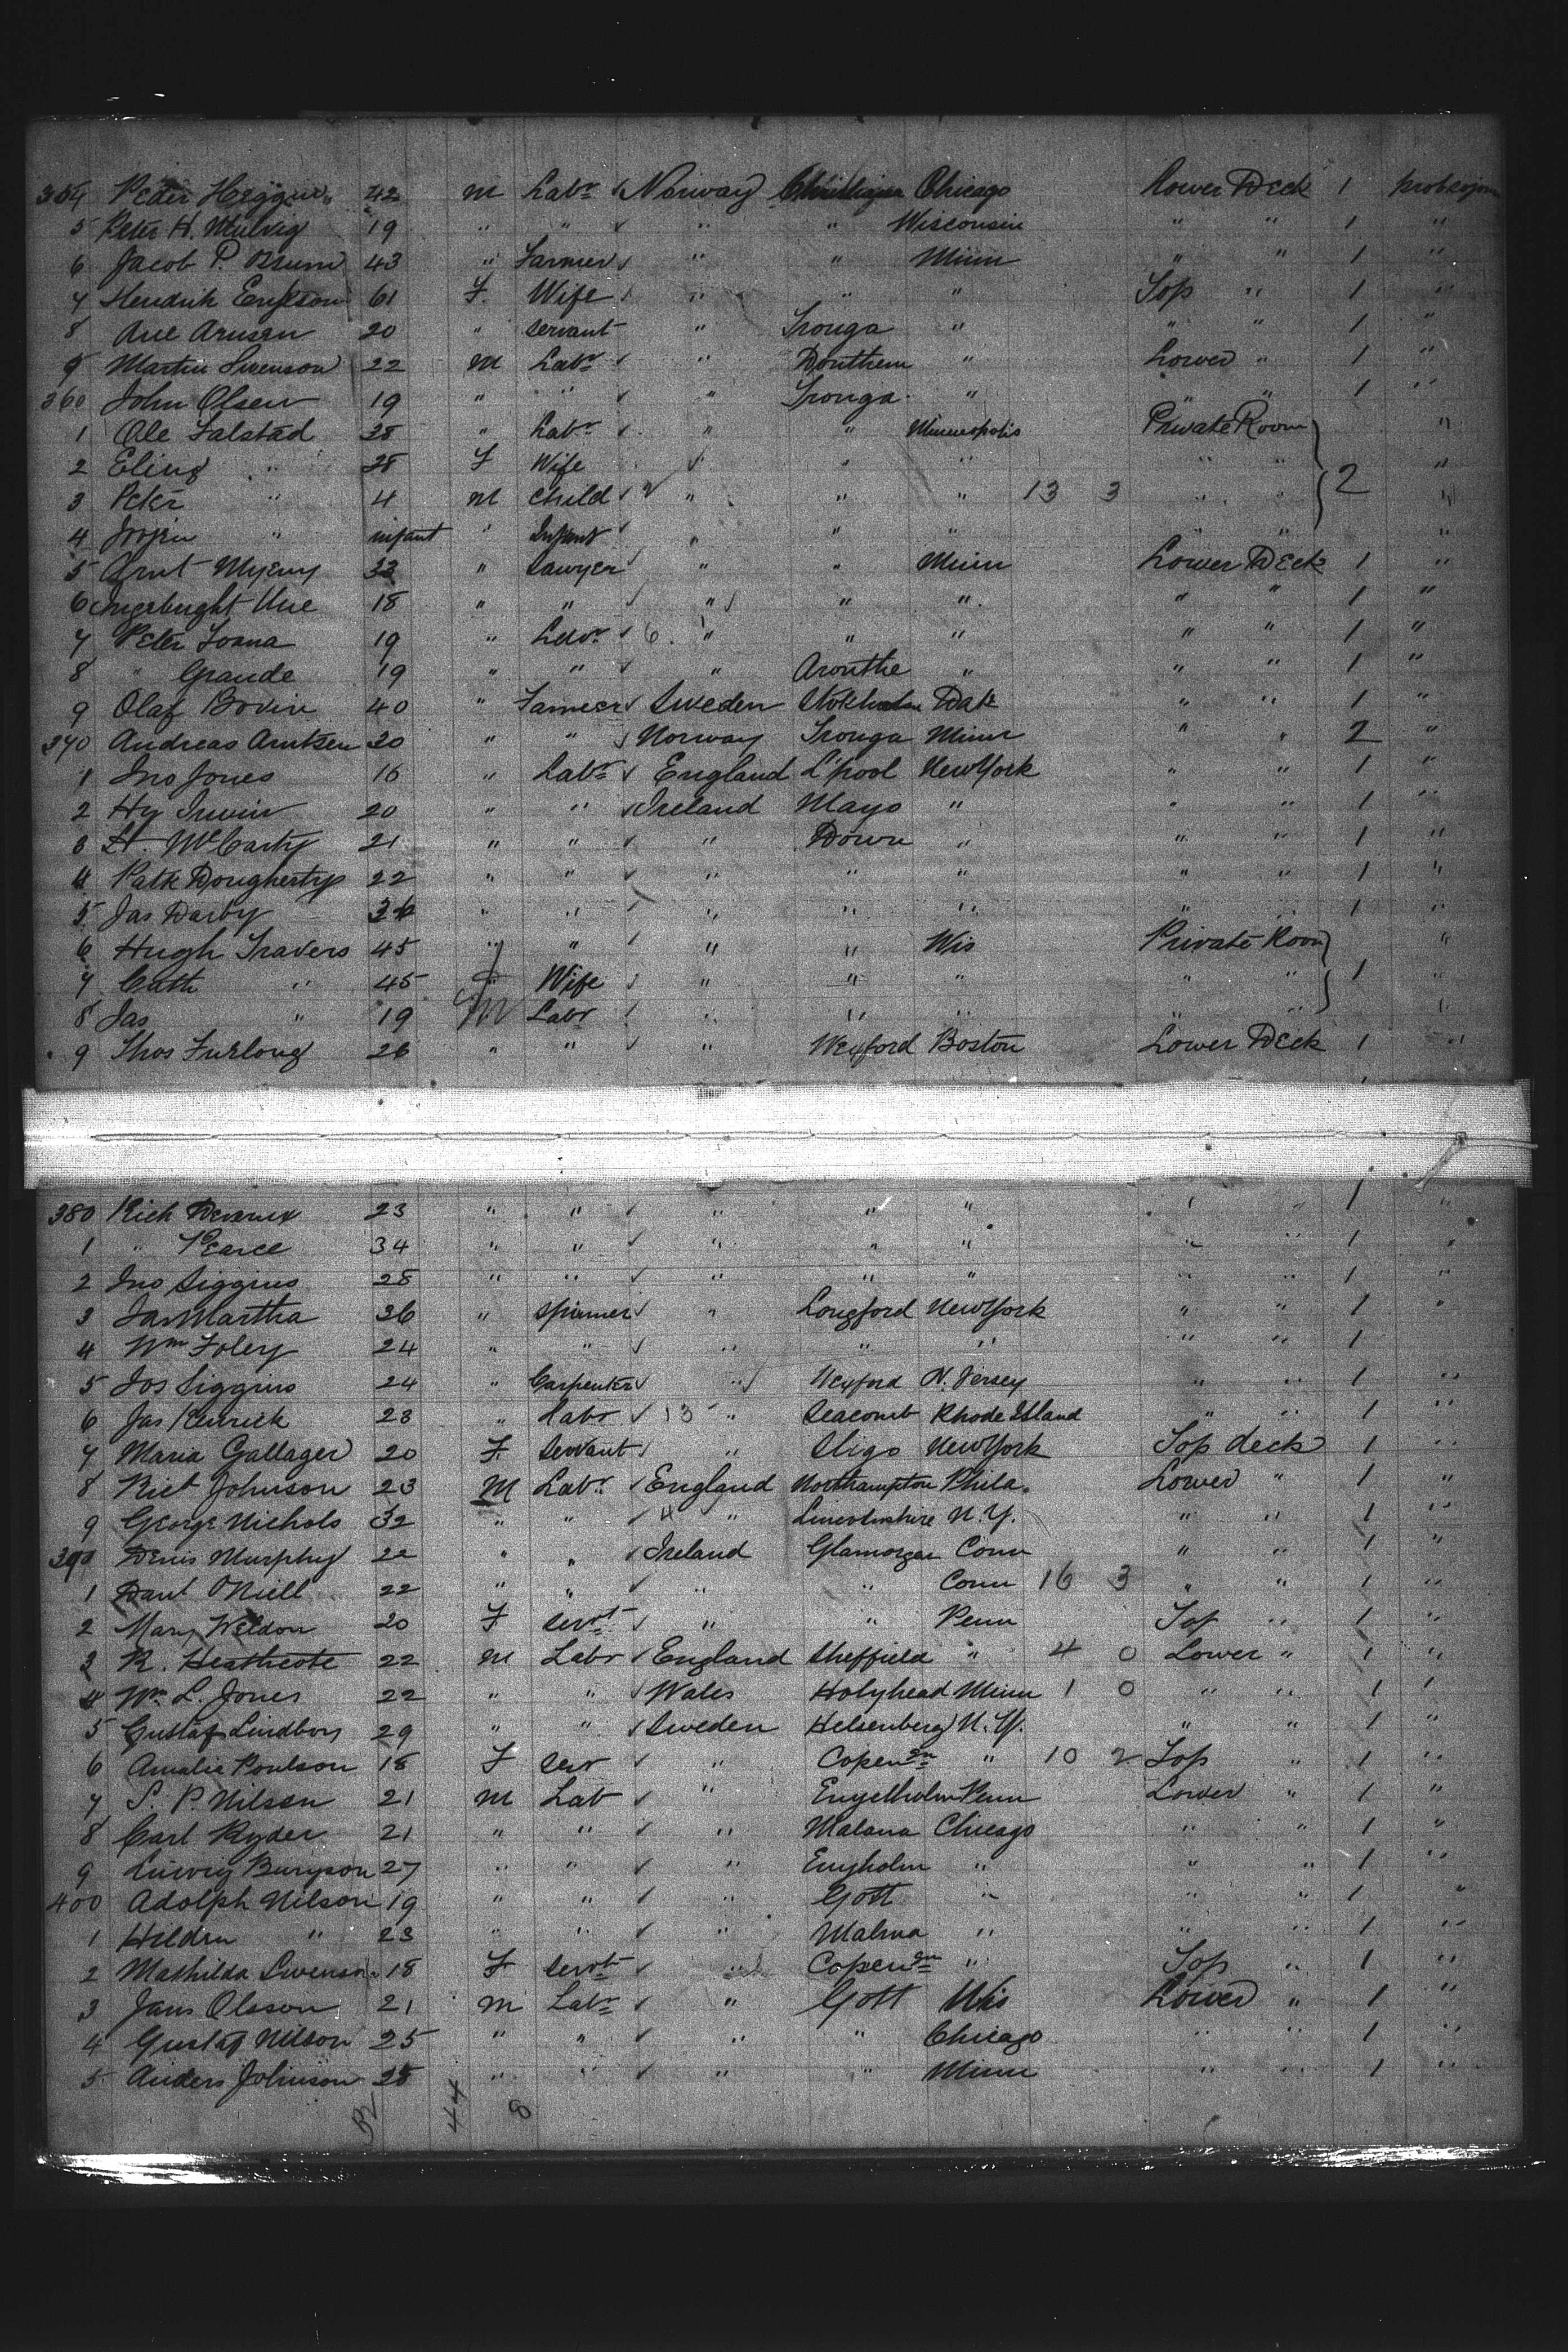 354 Peter 42 M Labr Norway Christiania Chicago Lower Deck 1
5 Peter H. Mulvig 19 " " " " Wisconsin " " 1 "
6 Jacob P. Brunn 43 " Farmer " " Minn " " 1 "
7 Hendrik Erikson 61 F. Wife " " " Top " 1 "
8 Ane Arnsen 20 " Servant " Tronga " " " 1 "
9 Martin Swenson 22 M Labr " Dronthem " Lower " 1 "
360 John Olsen 19 " " " Tronga " " " 1 "
1 Ole Falstad 38 " Labr " " Minneapolis Private Room "
2 Eling " 28 F Wife " " " " 2 "
3 Peter " 4 M Child " " " 13 3 " " "
4 " infant " Infant " " " " " "
5 Arnt 33 " Sawyer " " Minn Lower Deck 1 "
6 Une 18 " " " " " " " 1 "
7 Peter 19 " Labr 6 " " " " " 1 "
8 " Grande 19 " " " " " " 1 "
9 Olaf Bodin 40 " Farmer Sweden Stokholm Dak " " 1 "
370 Andreas Arntsen 30 " " Norway Tronga Minn " " 2 "
1 Jno Jones 16 " Labr England L'pool New York " " 1 "
2 Hy Irwin 20 " " Ireland Mayo " " " 1 "
3 McCarty 21 " " " Down " " " 1 "
4 Patk Dougherty 22 " " " " " " " 1 "
5 Jas Darby 36 " " " " " " " 1 "
6 Hugh Travers 45 " " " " Wis Private Room "
7 Cath " 45 F Wife " " " " " 1 "
8 Jas " 19 M Labr " " " " " "
9 Thos Furlong 26 " " " Wexford Boston Lower Deck 1 "
380 Rich Devereux 23 " " " " " " " 1 "
1 " Pearce 34 " " " " " " " 1 "
2 Jno Siggins 28 " " " " " " " 1 "
3 Jas Martha 36 " Spinner " Longford New York " " 1 "
4 Wm Foley 24 " " " " " " " 1
5 Jos Siggins 24 " Carpenter " Wexford N. Jersey " " 1 "
6 Jas Kenrick 23 " Labr 13 " Seacomb Rhode Island " " 1 "
7 Maria Gallager 20 F. Servant " Sligo New York Top deck 1 "
8 Johnson 23 M Labr England Northampton Phila. Lower " 1 "
9 George Nichols 32 " " 4 " Lincolnshire N.Y. " " 1 "
390 Denis Murphy 22 " " Ireland Glamorgan Conn " " 1 "
1 Danl ONiell 22 " " " " Conn 16 3 " " 1 "
2 Mary Weldon 20 F Servt " " Penn Top " 1 "
3 R. Heathcote 22 M Labr England Sheffield " 4 0 Lower " 1 "
4 Wm L. Jones 22 " " Wales Holyhead Minn 1 0 " " 1 "
5 Gustaf Lindborg 29 " " Sweden Helsenberg N.Y. " " 1 "
6 Amalia Poulson 18 F Serv " Copengn " 10 2 Top " 1 "
7 S. P. Nilsen 21 M Lab " Engelholm Penn Lower " 1 "
8 Carl Ryder 21 " " " Malana Chicago " " 1 "
9 Ludvig 27 " " " Engholm " " " 1 "
400 Adolph Nilson 19 " " " Gott " " " 1 "
1 " 23 " " " Malma " " " 1 "
2 Mathilda Swenson 18 F Servt " Copengn " Top " 1 "
3 Jans Olsson 21 M Labr " Gott Wis Lower " 1 "
4 Gustaf Nilson 25 " " " " Chicago " " 1 "
5 Anders Johnson 25 " " " " Minn " " 1 "
44 8